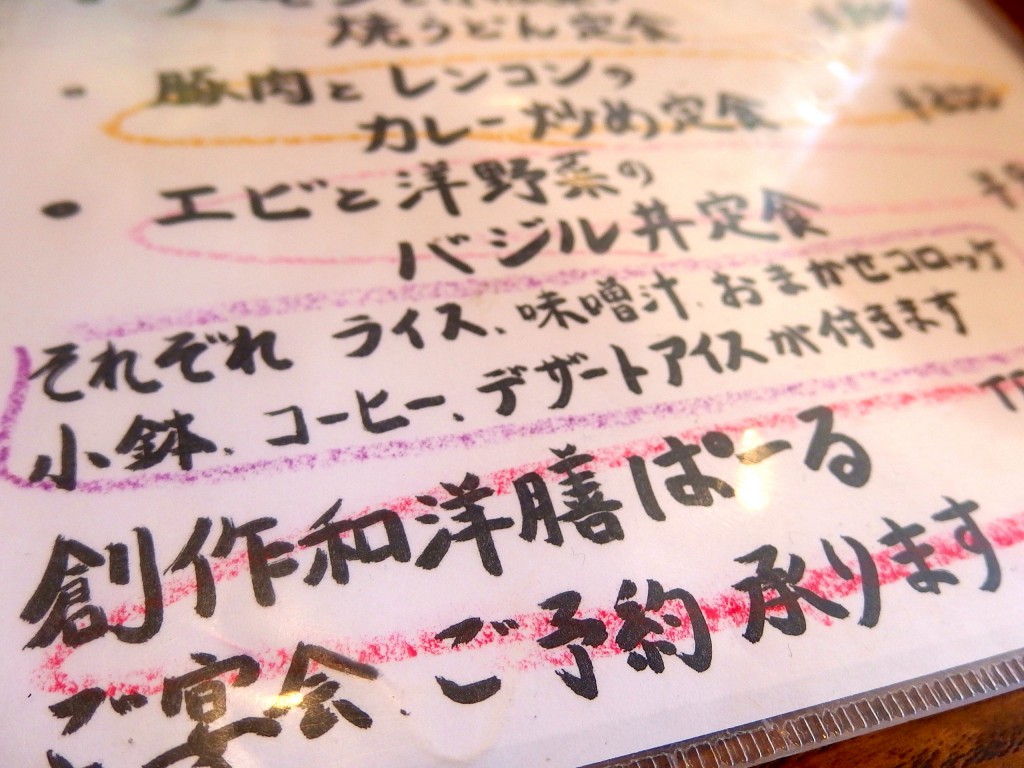 焼うどん定食
・豚肉とレンコンの
カレー炒め定食
・エビと洋野菜の
バジル丼定食
それぞれ ライス、味噌汁、おまかせコロッケ
小鉢、コーヒー、デザートアイスが付きます
創作和洋膳ぱーる
ご宴会 ご予約 承ります